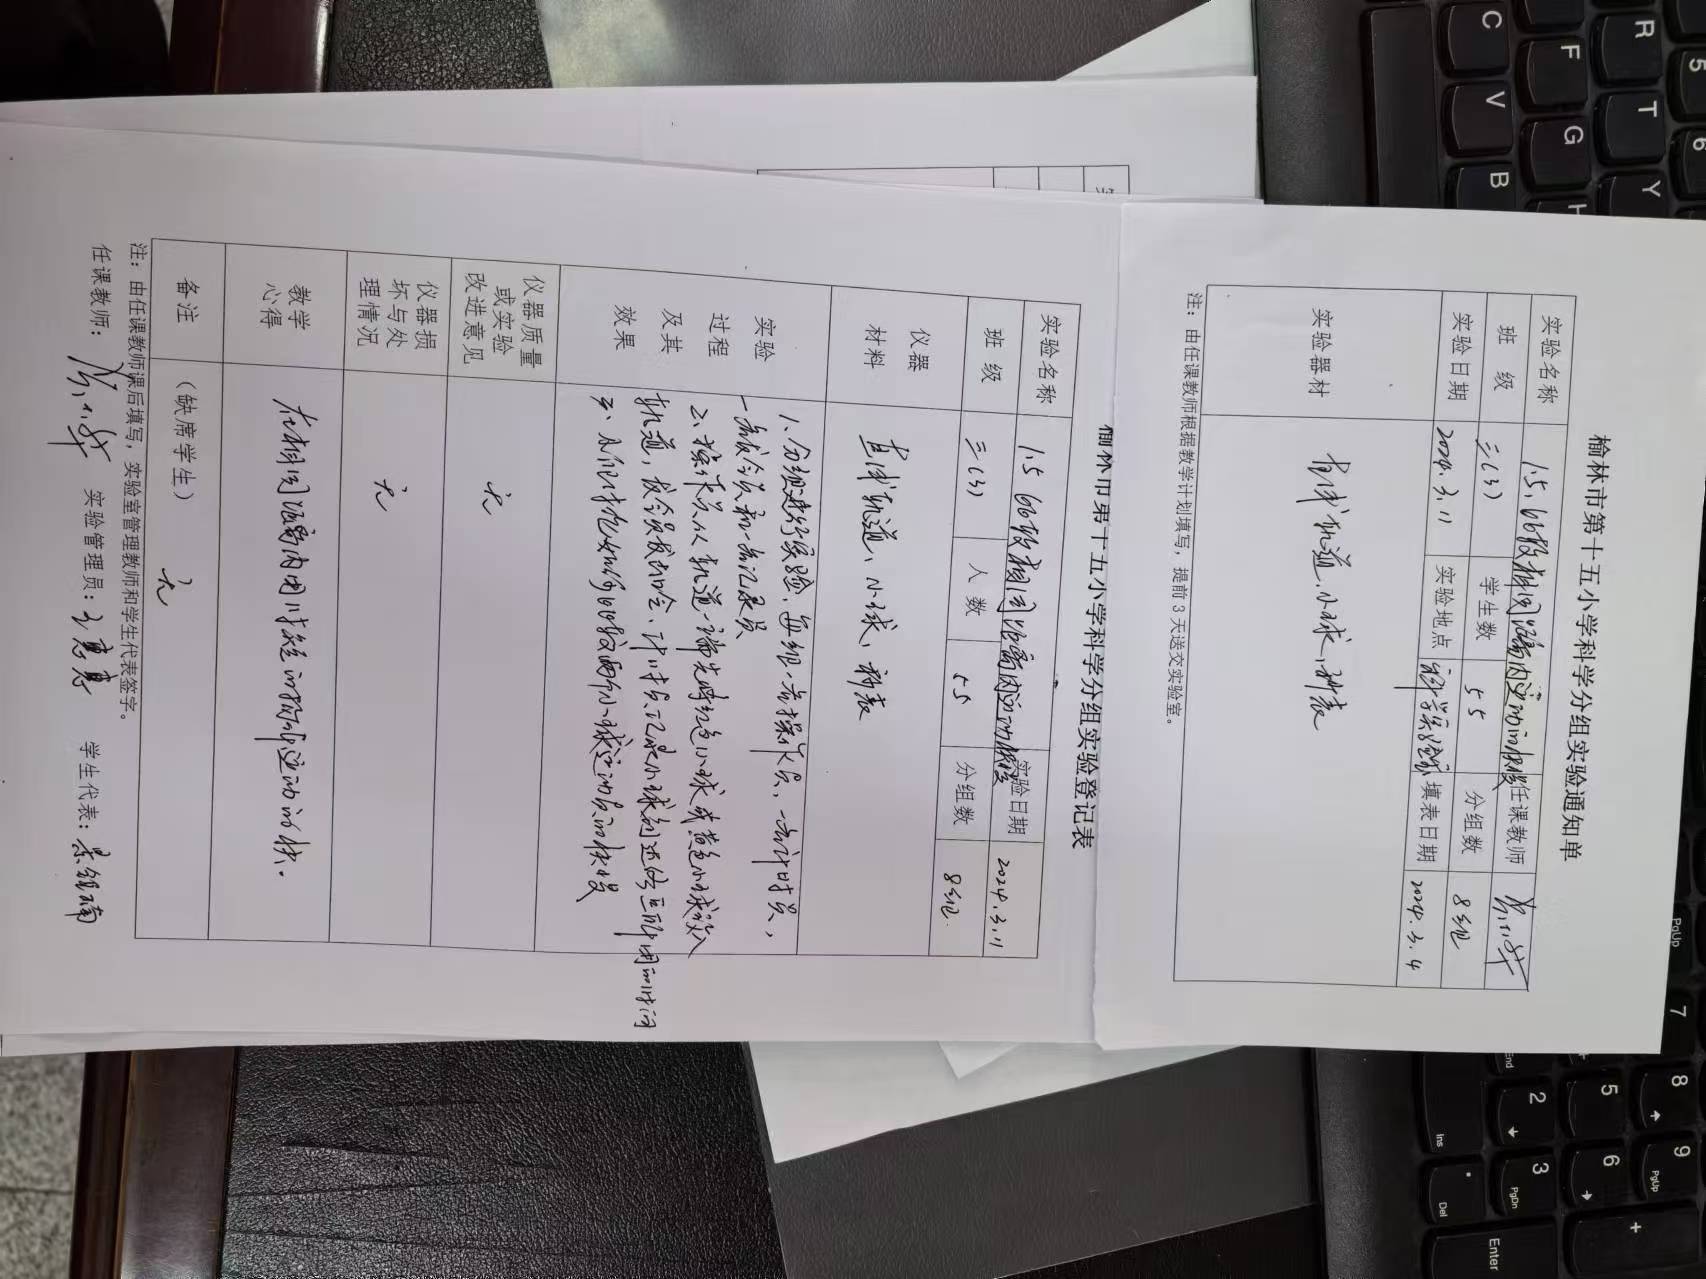 榆林市第十五小学科学分组实验通知单
实验名称 1.5、比较相同距离内运动的快慢 任课教师
班 级 三(3) 学生数 55 分组数 8组
实验日期 2024.3.11 实验地点 科学实验室 填表日期 2024.3.4
实验器材 直线轨道、小球、秒表
注：由任课教师根据教学计划填写，提前3天送交实验室。
榆林市第十五小学科学分组实验登记表
实验名称 1.5 比较相同距离内运动的快慢 实验日期 2024.3.11
班 级 三(3) 人 数 55 分组数 8组
仪器材料 直线轨道、小球、秒表
实验过程及其效果
1、分组进行实验，每组一名操作员，一名计时员，
一名发令员和一名记录员
2、操作员从轨道一端先将红色小球或黄色小球放入
轨道，发令员发出口令，计时员记录小球到达终点所用的时间
3、
仪器质量或实验改进意见 无
仪器损坏与处理情况 无
教学心得 在相同距离内用时短的物体运动的快.
备注 （缺席学生） 无
注：由任课教师课后填写，实验室管理教师和学生代表签字。
任课教师： 实验管理员： 学生代表：